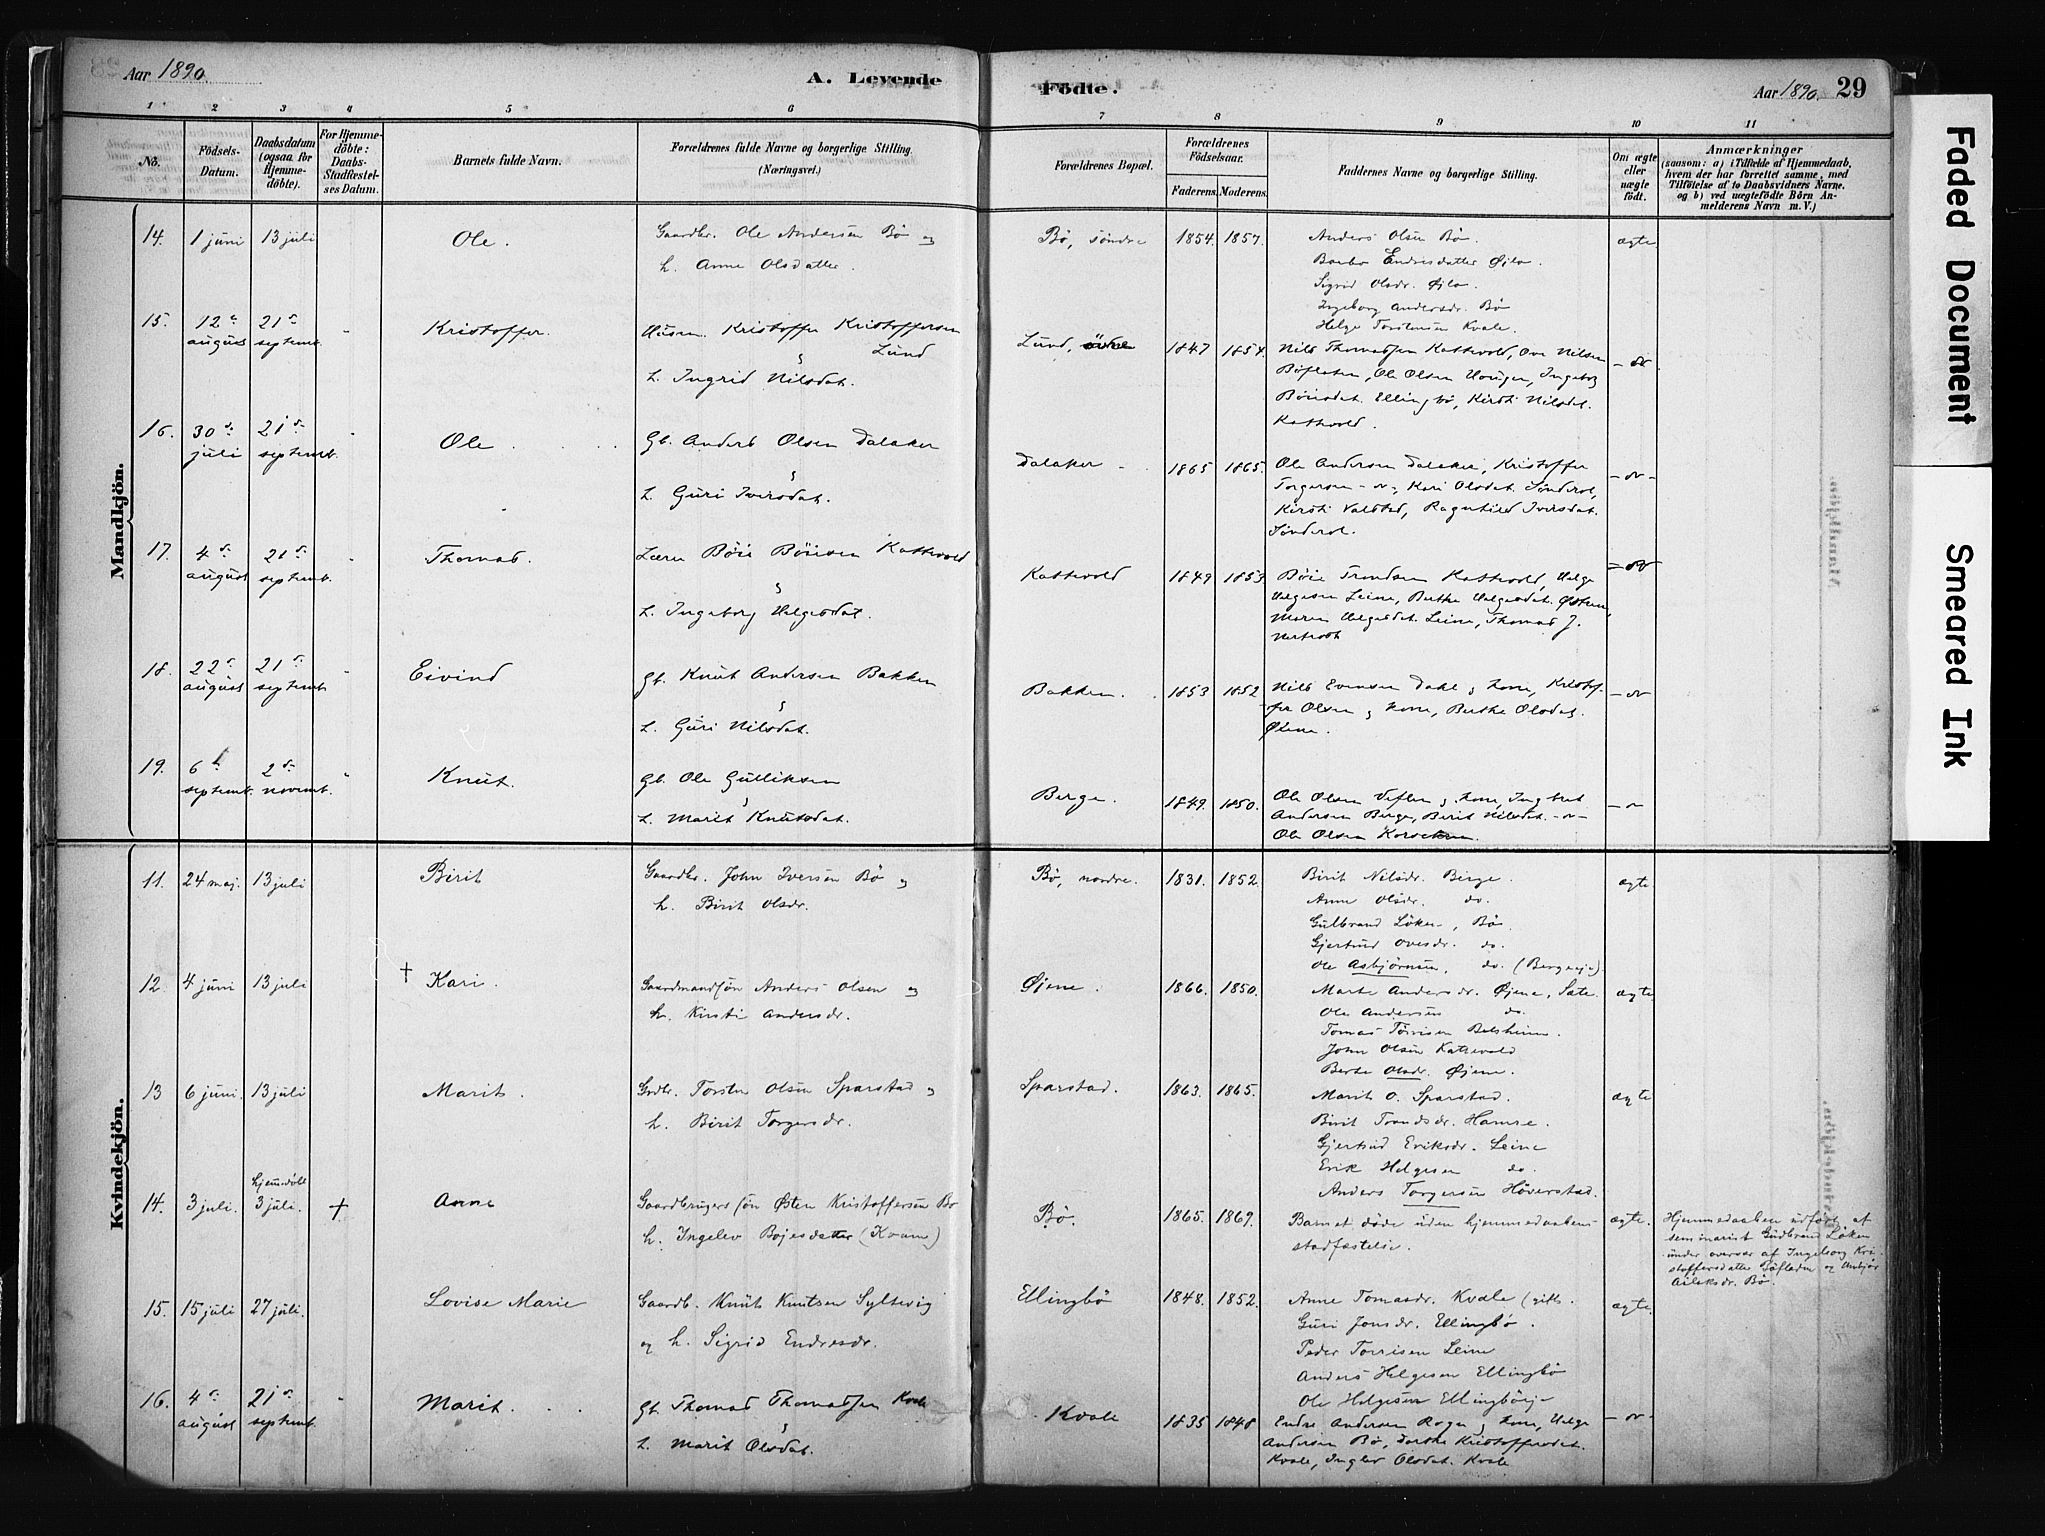 Aar 1890.
A. Levende
Födte.
Aar 1890. 29
1 2 3 4 5 6 7 8 9 10 11
No.
Födsels-Datum.
Daabsdatum (ogsaa for Hjemmedöbte).
For Hjemmedöbte: Daabs-Stadfæstelses Datum.
Barnets fulde Navn.
Forældrenes fulde Navne og borgerlige Stilling. (Næringsvei.)
Forældrenes Bopæl.
Forældrenes Födselsaar.
Faderens. Moderens.
Faddernes Navne og borgerlige Stilling.
Om ægte eller uægte födt.
Anmærkninger
(saasom: a) i Tilfælde af Hjemmedaab,
hvem der har forrettet samme, med
Tilföielse af to Daabsvidners Navne.
og b) ved uægtefödte Börn An-
melderens Navn m. V.)
Mandkjön.
14. 1 juni 13 juli Ole. Gaardbr. Ole Andersen Bø og
h. Anne Olsdatter.
Bø, søndre 1854. 1857. Anders Olsen Bø. ægte
Barbo Endresdatter Øjlo.
Sigrid Olsdr. Øjlo.
Ingeborg Andersdr. Bø
Helge Torstensen Kvale.
15. 12te august 21de septemb. Kristoffer. Husm. Kristoffer Kristoffersen Lund
&
h. Ingrid Nilsdat.
Lund, 1847 1854. Nils Thomassen Kattevold, Ove Nilsen
Bøflaten, Ole Olsen Hougen, Ingeborg
Böiesdat. Ellingbø, Kirsti Nilsdat.
Kattevold.
16. 30te juli 21de septemb. Ole Gb. Anders Olsen Dalaker
&
h. Guri Iversdat.
Dalaker 1865 1865. Ole Andersen Dalaker, Kristoffer
Torgersen -"-, Kari Olsdat. Sønderol,
Kirsti Valstad, Ragnhild Iversdat.
Sønderol.
17. 4de august 21de septemb. Thomas. Lærer Böie Böiesen Kattevold
&
h. Ingeborg Helgesdat.
Kattevold 1849 1853 Böie Trondsen Kattevold, Helge
Helgesen Leine, Berthe Helgesdat.
Maren Helgesdat. Leine, Thomas J.
18. 22de august 21de septemb. Eivind Gb. Knut Andersen Bakken
&
h. Guri Nilsdat.
Bakken. 1853 1852 Nils Evensen Dahl & kone, Kristof-
fer Olsen & kone, Berthe Olsdat.
Øiene.
19. 6te septemb. 2de novemb. Knut. Gb. Ole Gulliksen
&
h. Marit Knutsdat.
Berge. 1849. 1850. Ole Olsen & kone, Ingbret
Andersen Berge, Berit Nilsdat. -"-
Ole Olsen
Kvindekjön.
11. 24 maj. 13 juli Birit Gaardbr. John Iversen Bø og
h. Birit Olsdr.
Bø, nordre. 1831. 1852. Birit Nilsdr. Berge. ægte
Anne Olsdr. do.
Gulbrand Løken, Bø
Gjertrud Ovesdr. do.
Ole Asbjørnsen, do. (Bergeeje).
12. 4 juni 13 juli † Kari. Gaardmandsøn Anders Olsen og
h. Kirsti Andersdr.
Øjene. 1866. 1850. Marte Andersdr. Øjene, Sæte. ægte
Ole Andersen do.
Tomas Torrisen Belsheim.
John Olsen Kattevold
Berte Olsdr. Øjene.
13 6 juni. 13 juli Marit. Grdbr. Torsten Olsen Sparstad og
h. Birit Torgersdr.
Sparstad. 1863. 1865. Marit O. Sparstad. ægte
Birit Trondsdr. Hamre.
Gjertrud Eriksdr. Leine
Erik Helgesen do.
Anders Torgersen Høverstad.
14. 3 juli. hjemdøbt 3 juli. † Anne Gaardbrugersøn Østen Kristoffersen Bø
h. Ingelev Bøjesdatter (Kvam)
Bø. 1865. 1869. Barnet døde uden hjemmedaabens-
stadfæstelse. ægte.
Hjemmedaaben udført af
seminarist Gudbrand Løken
under overvær af Ingeborg Kri-
stoffersdatter Bøflaten og
Bø.
15. 15 juli 27 juli. Lovise Marie Gaardb. Knut Knutsen Syltevig
og h. Sigrid Endresdr.
Ellingbø 1848. 1852. Anne Tomasdr. Kvale (gift. ægte.
Guri Jonsdr. Ellingbø.
Peder Torrisen Leine
Anders Helgesen Ellingbø
Ole Helgesen Ellingbøej-
16. 4de august 21de septemb. Marit. Gb. Thomas Thomassen Kvale
&
h. Marit Olsdat.
Kvale 1835 1848 Endre Andersen Rogn & kone, Helge
Andersen Bø, Dorthe Kristoffersdat.
Kvale, Ingelev Olsdat. Kvale
Faded Document
Smeared Ink